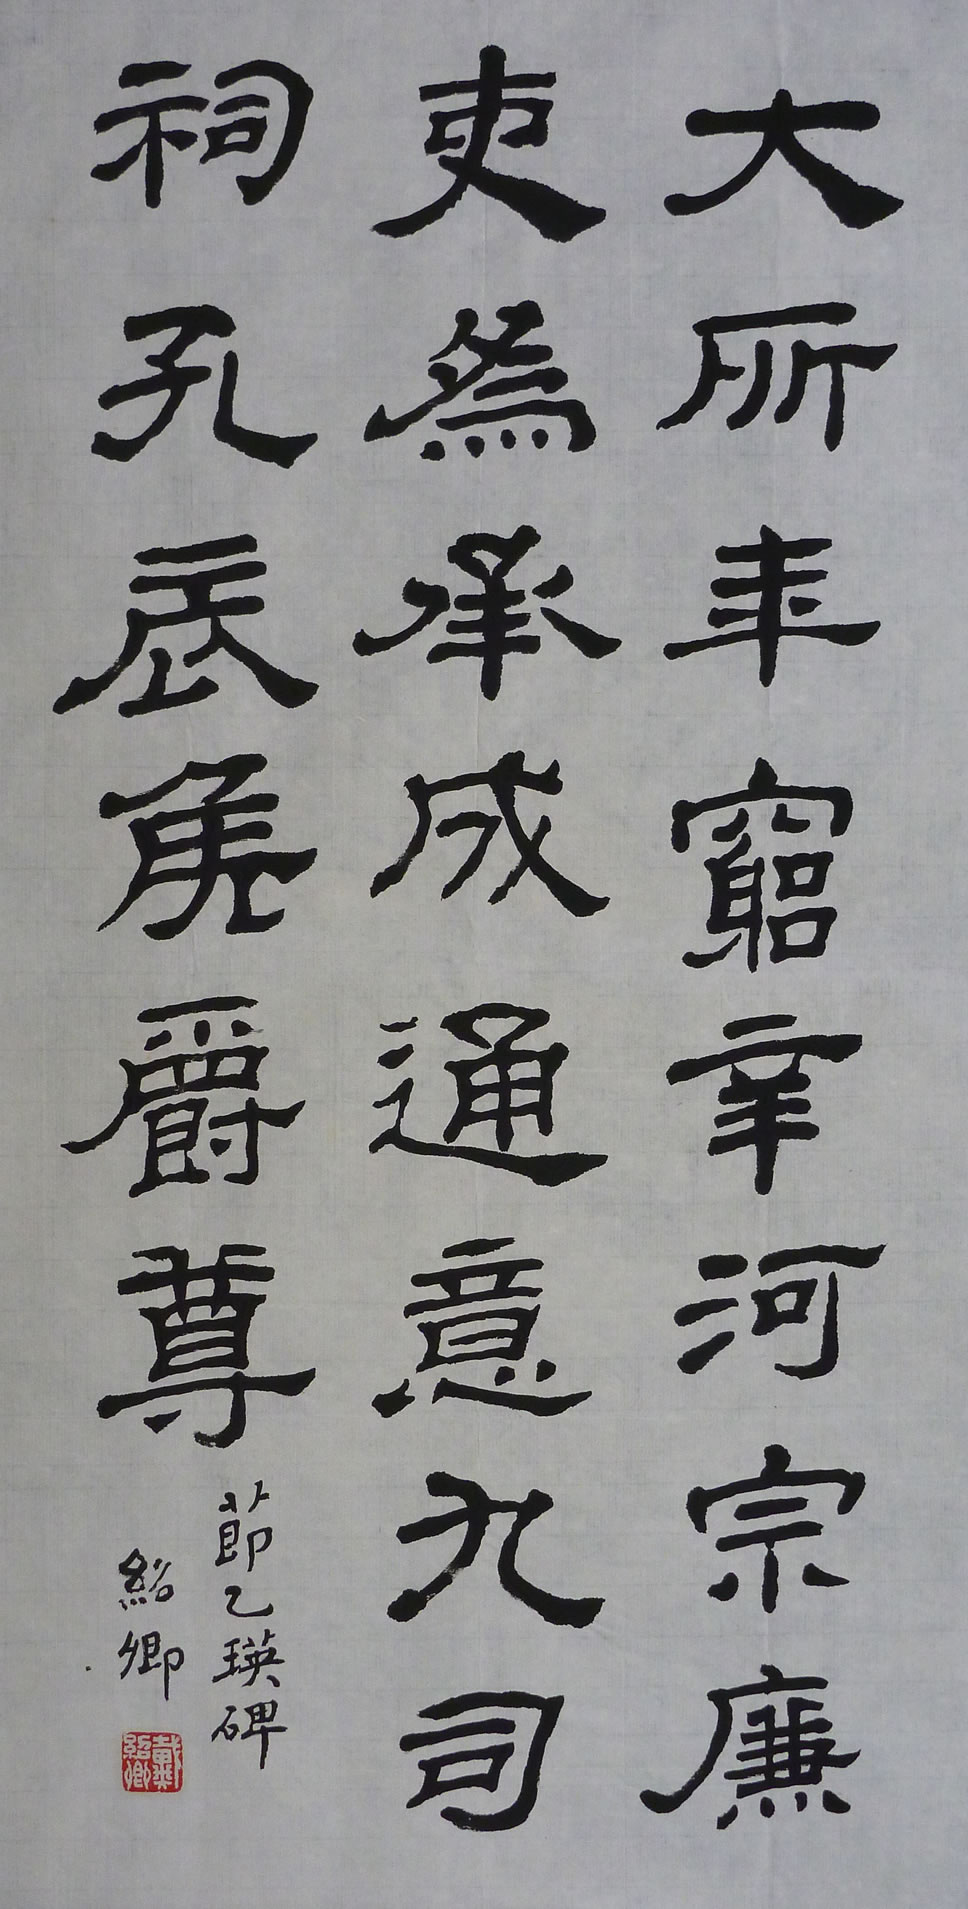 大所年窮幸河宗廉
吏爲承成通意九司
祠孔辰侯爵尊
節乙瑛碑
紹卿
戴紹卿